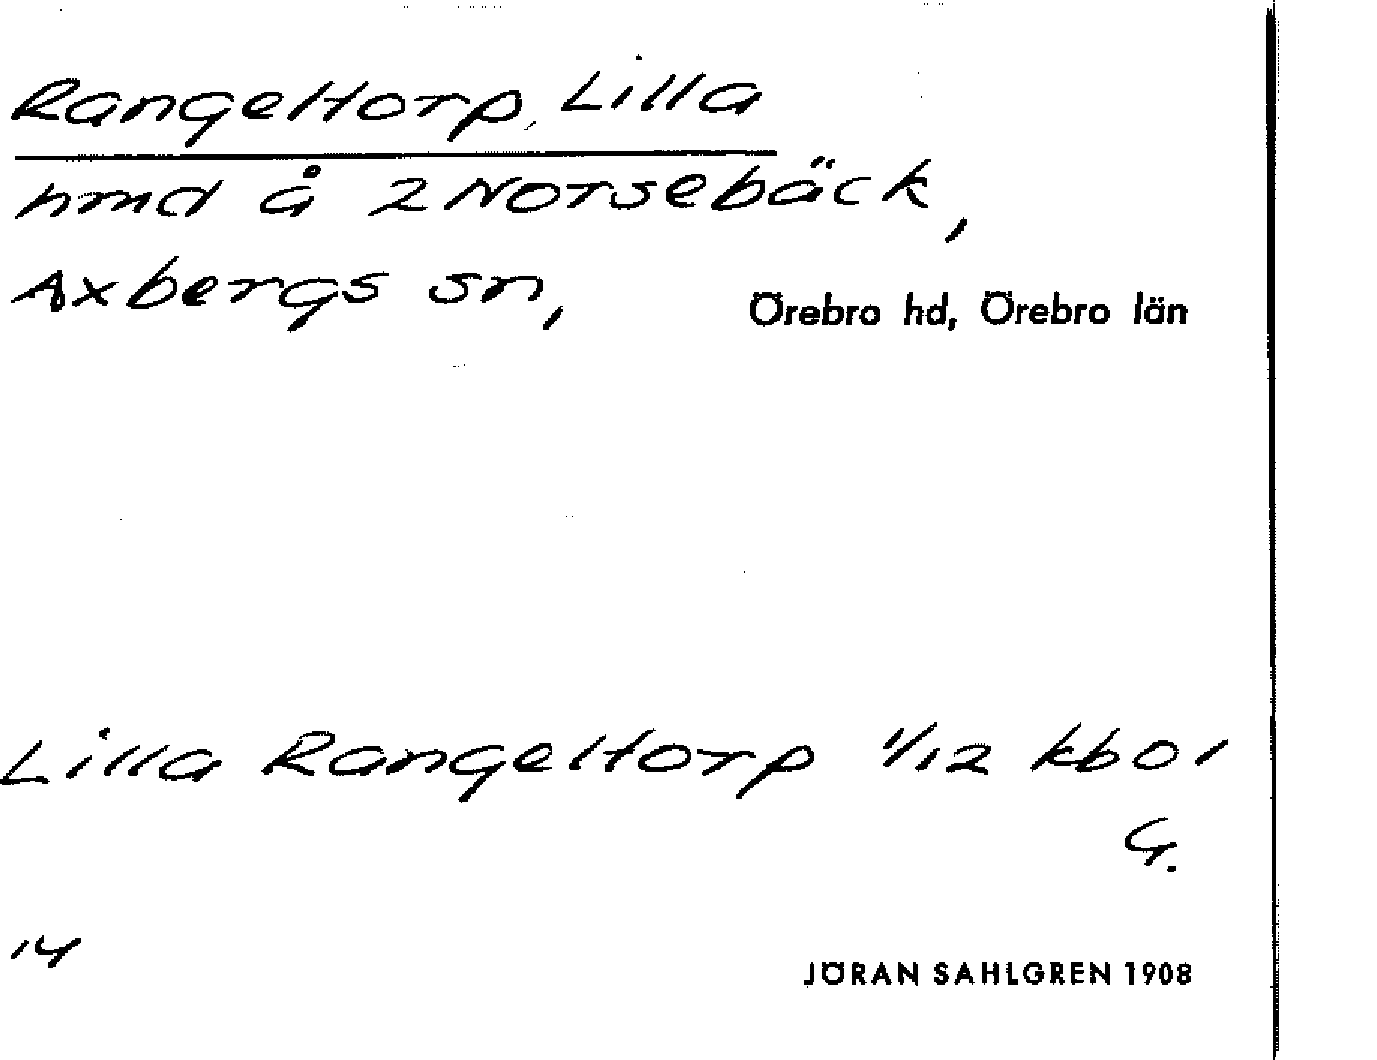 Rangeltorp, Lilla
hmd å 2 Norsebäck,
Axbergs sn, Örebro hd, Örebro län
Lilla Rangeltorp 1/12 kb01
G.
14
JÖRAN SAHLGREN 1908